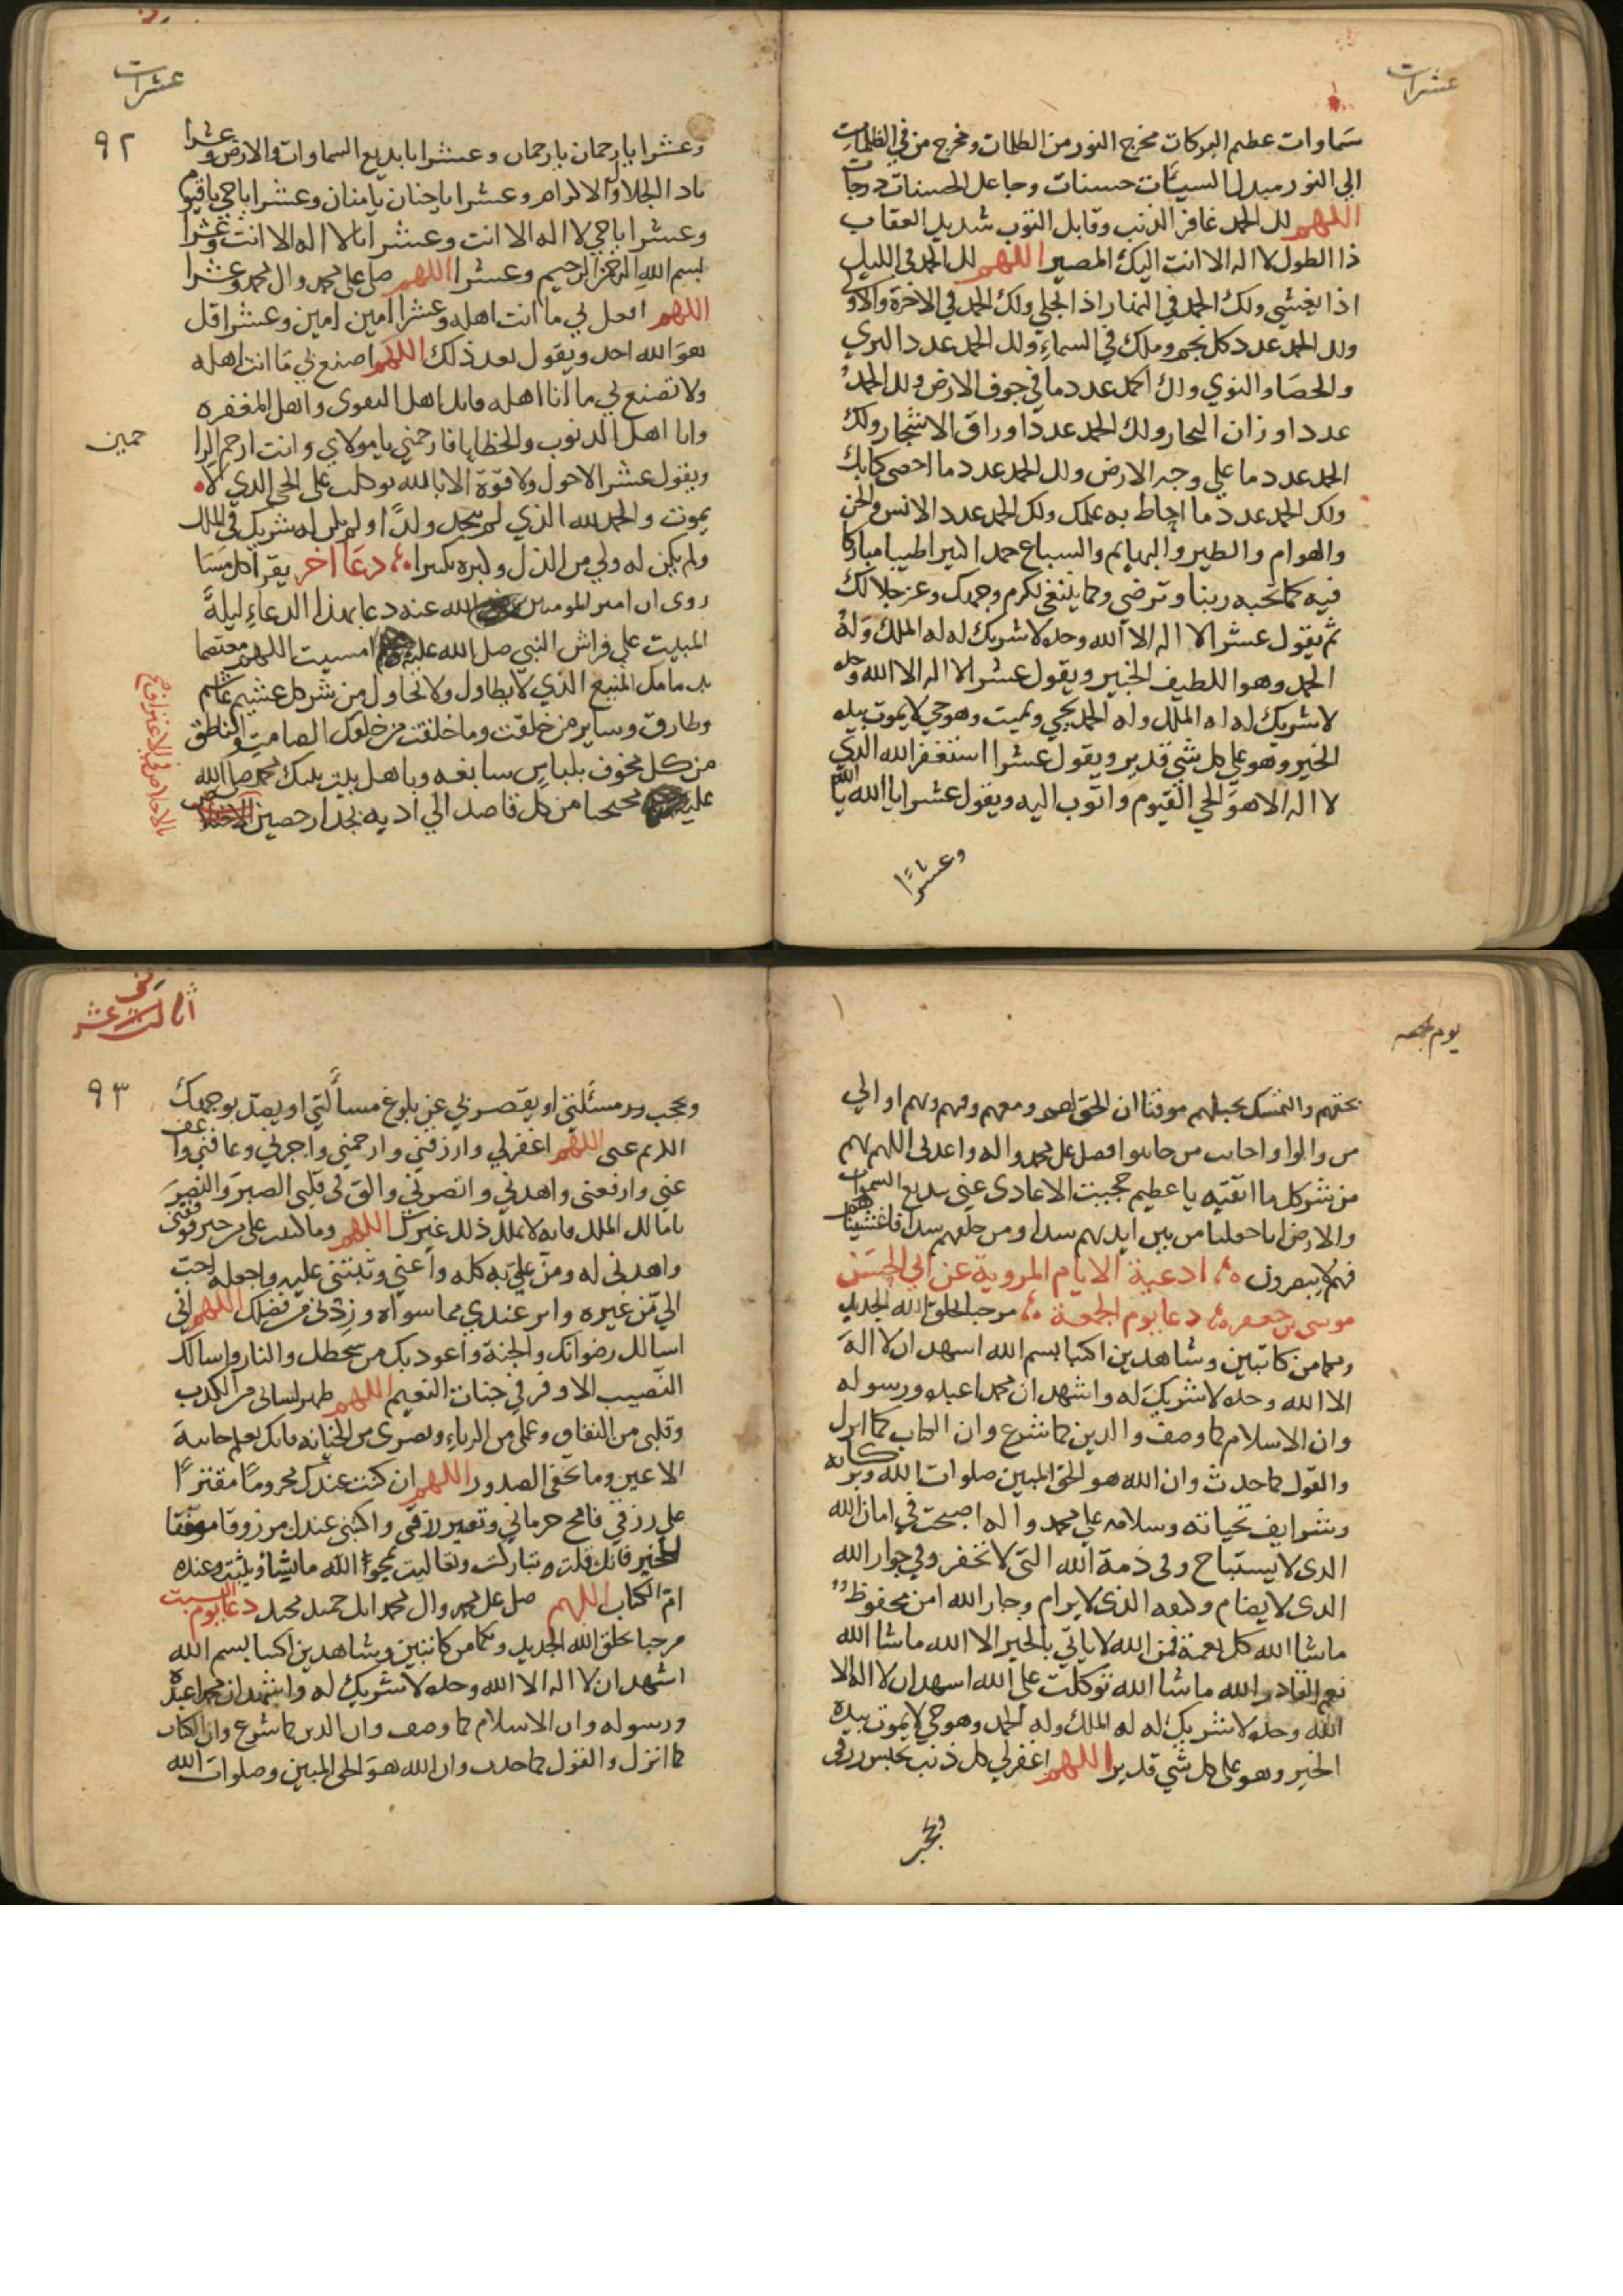 عشرات
سماوات عظيم البركات مخرج النور من الظلمات ومخرج من في الظلمات
الي النور مبدل السيئات حسنات وجاعل الحسنات درجات
اللهم لك الحمد غافر الذنب وقابل التوب شديد العقاب
ذا الطول لا اله الا انت اليك المصير اللهم لك الحمد في الليل
اذا يغشي ولك الحمد في النهار اذا تجلي ولك الحمد في الاخرة والاولي
ولك الحمد عدد كل نجم وملك في السماء ولك الحمد عدد الثري
والحصا والنوي ولك الحمد عدد ما في جوف الارض ولك الحمد
عدد اوزان البحار ولك الحمد عدد اوراق الاشجار ولك
الحمد عدد ما علي وجه الارض ولك الحمد عدد ما احصي كتابك
ولك الحمد عدد ما احاط به علمك ولك الحمد عدد الانس والجن
والهوام والطير والبهايم والسباع حمدا كثيرا طيبا مباركا
فيه كما تحبه ربنا وترضي وكما ينبغي لكرم وجهك وعز جلالك
ثم يقول عشرا لا اله الا الله وحده لا شريك له له الملك وله
الحمد وهو اللطيف الخبير ويقول عشرا لا اله الا الله وحده
لا شريك له له الملك وله الحمد يحيي ويميت وهو حي لا يموت بيده
الخير وهو علي كل شي قدير ويقول عشرا استغفر الله الذي
لا اله الا هو الحي القيوم واتوب اليه ويقول عشرا يا الله يا الله
وعشرا
عشرات
٩٢
وعشرا يا رحمان يا رحمان وعشرا يا بديع السماوات والارض وعشرا
يا ذا الجلال والاكرام وعشرا يا حنان يا منان وعشرا يا حي يا قيوم
وعشرا يا حي لا اله الا انت وعشرا يا لا اله الا انت وعشرا
بسم الله الرحمن الرحيم وعشرا اللهم صل علي محمد وال محمد وعشرا
اللهم افعل بي ما انت اهله وعشرا امين امين وعشرا قل
هو الله احد ويقول بعد ذلك اللهم اصنع بي ما انت اهله
ولا تصنع بي ما انا اهله فانك اهل التقوي واهل المغفره
وانا اهل الذنوب والخطايا فارحمني يا مولاي وانت ارحم الرا
حمين
ويقول عشرا لا حول ولا قوة الا بالله توكلت علي الحي الذي لا
يموت والحمد لله الذي لم يتخذ ولدا ولم يكن له شريك في الملك
ولم يكن له ولي من الذل وكبره تكبيرا دعا اخر يقرا كل مسا
روي ان امير المومنين الله عنه دعا بهذا الدعاء ليلة
المبيت علي فراش النبي صل الله عليه امسيت اللهم معتصما
بذمامك المنيع الذي لا يطاول ولا يحاول من شر كل غاشم
وطارق وساير من خلقت وما خلقت من خلقك الصامت والناطق
من كل مخوف بلباس سابغه وباهل بيت نبيك محمد صل الله
عليه محتجبا من كل قاصد الي اذيه بجدار حصين
بالاخلاص في الاعتراف
يوم جمعه
بحقهم والتمسك بحبلهم موقنا ان الحق لهم ومعهم وفيهم وبهم اوالي
من والوا واجانب من جانبوا فصل علي محمد واله واعذني اللهم بهم
من شر كل ما اتقيه يا عظيم حجبت الاعادي عني ببديع السموات
والارض انا جعلنا من بين ايديهم سدا ومن خلفهم سدا فاغشيناهم
فهم لا يبصرون ادعية الايام المروية عن ابي الحسن
موسي بن جعفر دعا يوم الجمعة مرحبا بخلق الله الجديد
وبكما من كاتبين وشاهدين اكتبا بسم الله اشهد ان لا اله
الا الله وحده لا شريك له واشهد ان محمدا عبده ورسوله
وان الاسلام كما وصف والدين كما شرع وان الكتاب كما انزل
والقول كما حدث وان الله هو الحق المبين صلوات الله وبركاته
وشرايف تحياته وسلامه علي محمد واله اصبحت في امان الله
الذي لا يستباح وفي ذمة الله التي لا تخفر وفي جوار الله
الذي لا يضام وكنفه الذي لا يرام وجار الله امن محفوظ
ما شا الله كل نعمة فمن الله لا ياتي بالخير الا الله ما شا الله
نعم القادر الله ما شا الله توكلت علي الله اشهد ان لا اله الا
الله وحده لا شريك له له الملك وله الحمد وهو حي لا يموت بيده
الخير وهو علي كل شي قدير اللهم اغفر لي كل ذنب يحبس رزقي
ويحجب
٩٣
ويحجب مسئلتي او يقصر بي عن بلوغ مسألتي او يصد بوجهك
الكريم عني اللهم اغفر لي وارزقني وارحمني واجبرني وعافني واعف
عني وارفعني واهدني وانصرني والق في قلبي الصبر والنصر
يا مالك الملك فانه لا يملك ذلك غيرك اللهم وما كتبت علي من خير فوفقني
واهدني له ومن علي به كله واعني وثبتني عليه واجعله احب
الي من غيره واثر عندي مما سواه وزدني من فضلك اللهم اني
اسالك رضوانك والجنة واعوذ بك من سخطك والنار واسالك
النصيب الاوفر في جنات النعيم اللهم طهر لساني من الكذب
وقلبي من النفاق وعملي من الرياء وبصري من الخيانه فانك تعلم خاينة
الاعين وما تخفي الصدور اللهم ان كنت عندك محروما مقترا
علي رزقي فامح حرماني وتقتير رزقي واكتبني عندك مرزوقا موفقا
للخير فانك قلت تباركت وتعاليت يمحوا الله ما يشاء ويثبت وعنده
ام الكتاب اللهم صل علي محمد وال محمد انك حميد مجيد دعا يوم السبت
مرحبا بخلق الله الجديد وبكما من كاتبين وشاهدين اكتبا بسم الله
اشهد ان لا اله الا الله وحده لا شريك له واشهد ان محمدا عبده
ورسوله وان الاسلام كما وصف وان الدين كما شرع وان الكتاب
كما انزل والقول كما حدث وان الله هو الحق المبين وصلوات الله